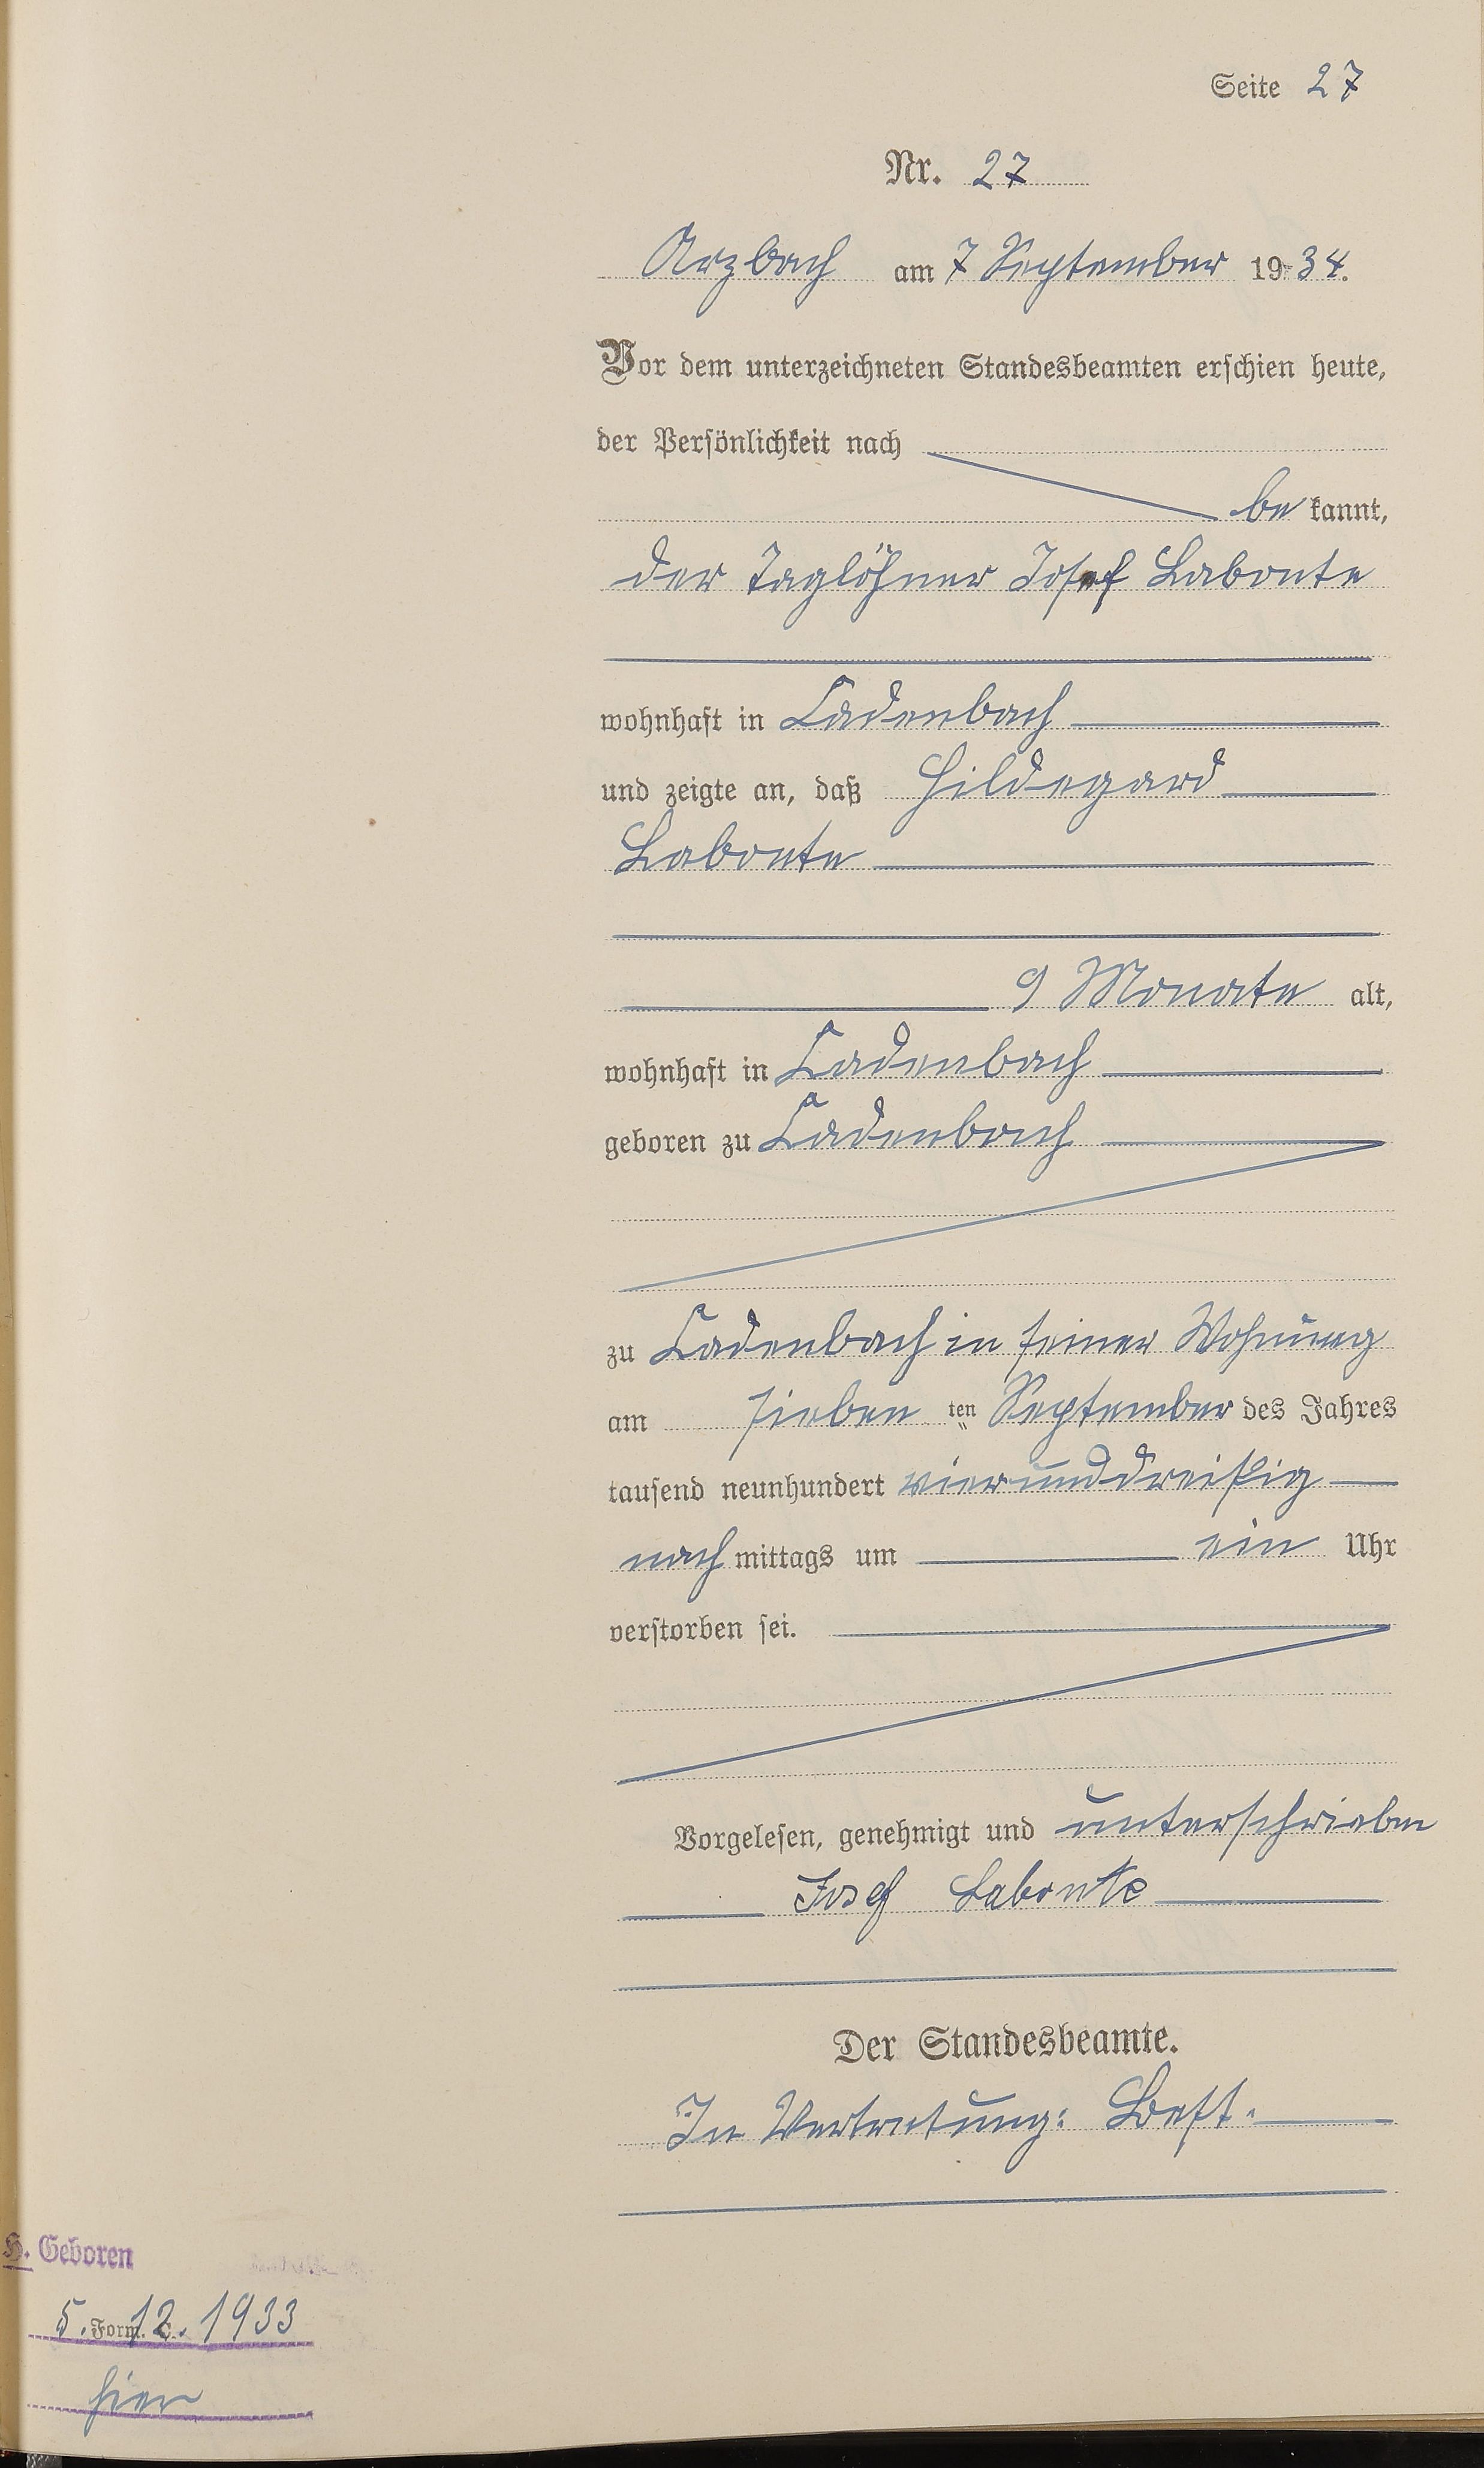 Seite 27
Nr. 27
Arzbach am 7 September 1934.
Vor dem unterzeichneten Standesbeamten erschien heute,
der Persönlichkeit nach
be kannt,
der Taglöhner Josef Labonte
wohnhaft in Cadenbach
und zeigte an, daß Hildegard
Labonte
9 Monate alt,
wohnhaft in Cadenbach
geboren zu Cadenbach
zu Cadenbach in seiner Wohnung
am sieben ten September des Jahres
tausend neunhundert vierunddreißig
nach mittags um ein Uhr
verstorben sei.
Vorgelesen, genehmigt und unterschrieben
Josef Labonte
Der Standesbeamte.
In Vertretung:
H. Geboren
5. 12. 1933
Form. C.
hier